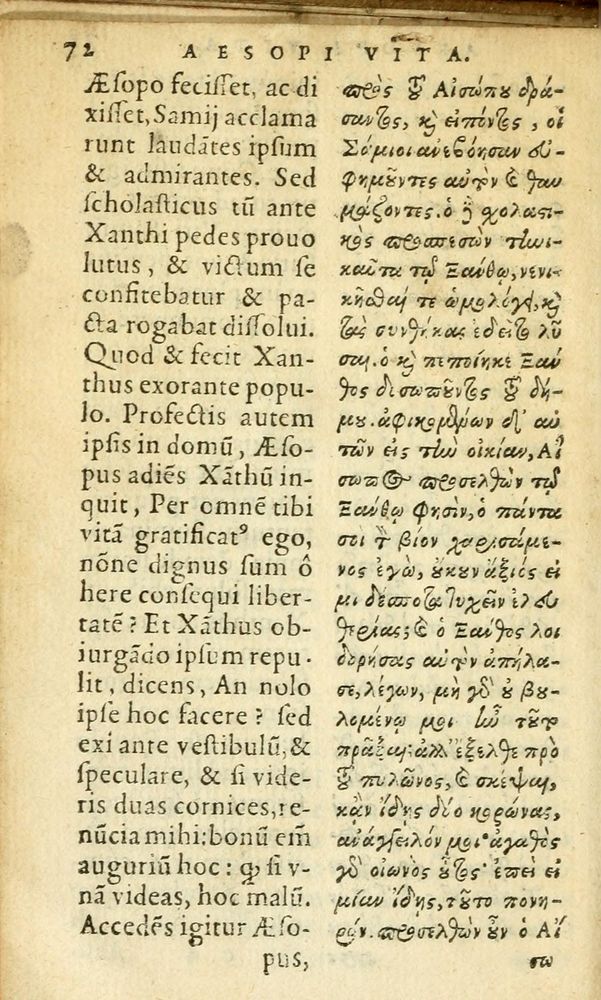 72 AESOPI VITA.
Æsopo fecisset, ac di
xisset, Samij acclama
runt laudãtes ipsum
& admirantes. Sed
scholasticus tũ ante
Xanthi pedes prouo
lutus, & victum se
confitebatur & pa-
cta rogabat dissolui.
Quod & fecit Xan-
thus exorante popu-
lo. Profectis autem
ipsis in domũ, Æso-
pus adiẽs Xãthũ in-
quit, Per omnẽ tibi
vitã gratificatꝰ ego,
nõne dignus sum ô
here consequi liber-
tatẽ? Et Xãthus ob-
iurgãdo ipsum repu-
lit, dicens, An nolo
ipse hoc facere? sed
exi ante vestibulũ, &
speculare, & si vide-
ris duas cornices, re-
nũcia mihi: bonũ em̃
auguriũ hoc: ꝙ si v-
nã videas, hoc malũ.
Accedẽs igitur Æso-
pus,
πρὸς τοῦ Αἰσώπου δρά-
σαντος, καὶ εἰπόντος, οἱ
Σάμιοι ἀνεβόησαν εὐ-
φημοῦντες αὐτὸν καὶ θαυ
μάζοντες. ὁ δὲ σχολαστι-
κὸς προσπεσὼν τηνι-
καῦτα τῷ Ξάνθῳ, νενι-
κῆσθαί τε ὡμολόγει, καὶ
τὰς συνθήκας ἐδεῖτο λῦ
σαι. ὃ καὶ πεποίηκε Ξάν
θος δυσωποῦντος τοῦ δή-
μου. ἀφικομένων δ' αὐ
τῶν εἰς τὴν οἰκίαν, Αἴ
σωπος προσελθὼν τῷ
Ξάνθῳ φησὶν, ὁ πάντα
σοι τὸν βίον χαρισάμε-
νος ἐγὼ, οὐκοῦν ἄξιός εἰ
μι δέσποτα τυχεῖν ἐλευ
θερίας; καὶ ὁ Ξάνθος λοι
δορήσας αὐτὸν ἀπήλα-
σε, λέγων, μὴ γὰρ οὐ βου-
λομένῳ μοι ἦν τοῦτο
πρᾶξαι; ἀλλ' ἔξελθε πρὸ
τοῦ πυλῶνος, καὶ σκέψαι,
κἂν ἴδῃς δύο κορώνας,
ἀνάγγειλόν μοι· ἀγαθὸς
γὰρ οἰωνὸς οὗτος· ἐπεὶ εἰ
μίαν ἴδῃς, τοῦτο πονη-
ρόν. προσελθὼν οὖν ὁ Αἴ
σω